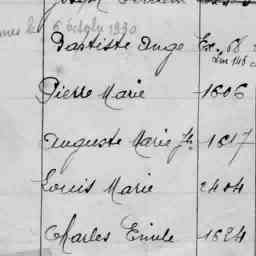 6 octobre 1930
Baptiste Ange Ex. 68
Lm 148
Pierre Marie 1606
Auguste Marie Jh 1617
Louis Marie 2404
Charles Emile 1624